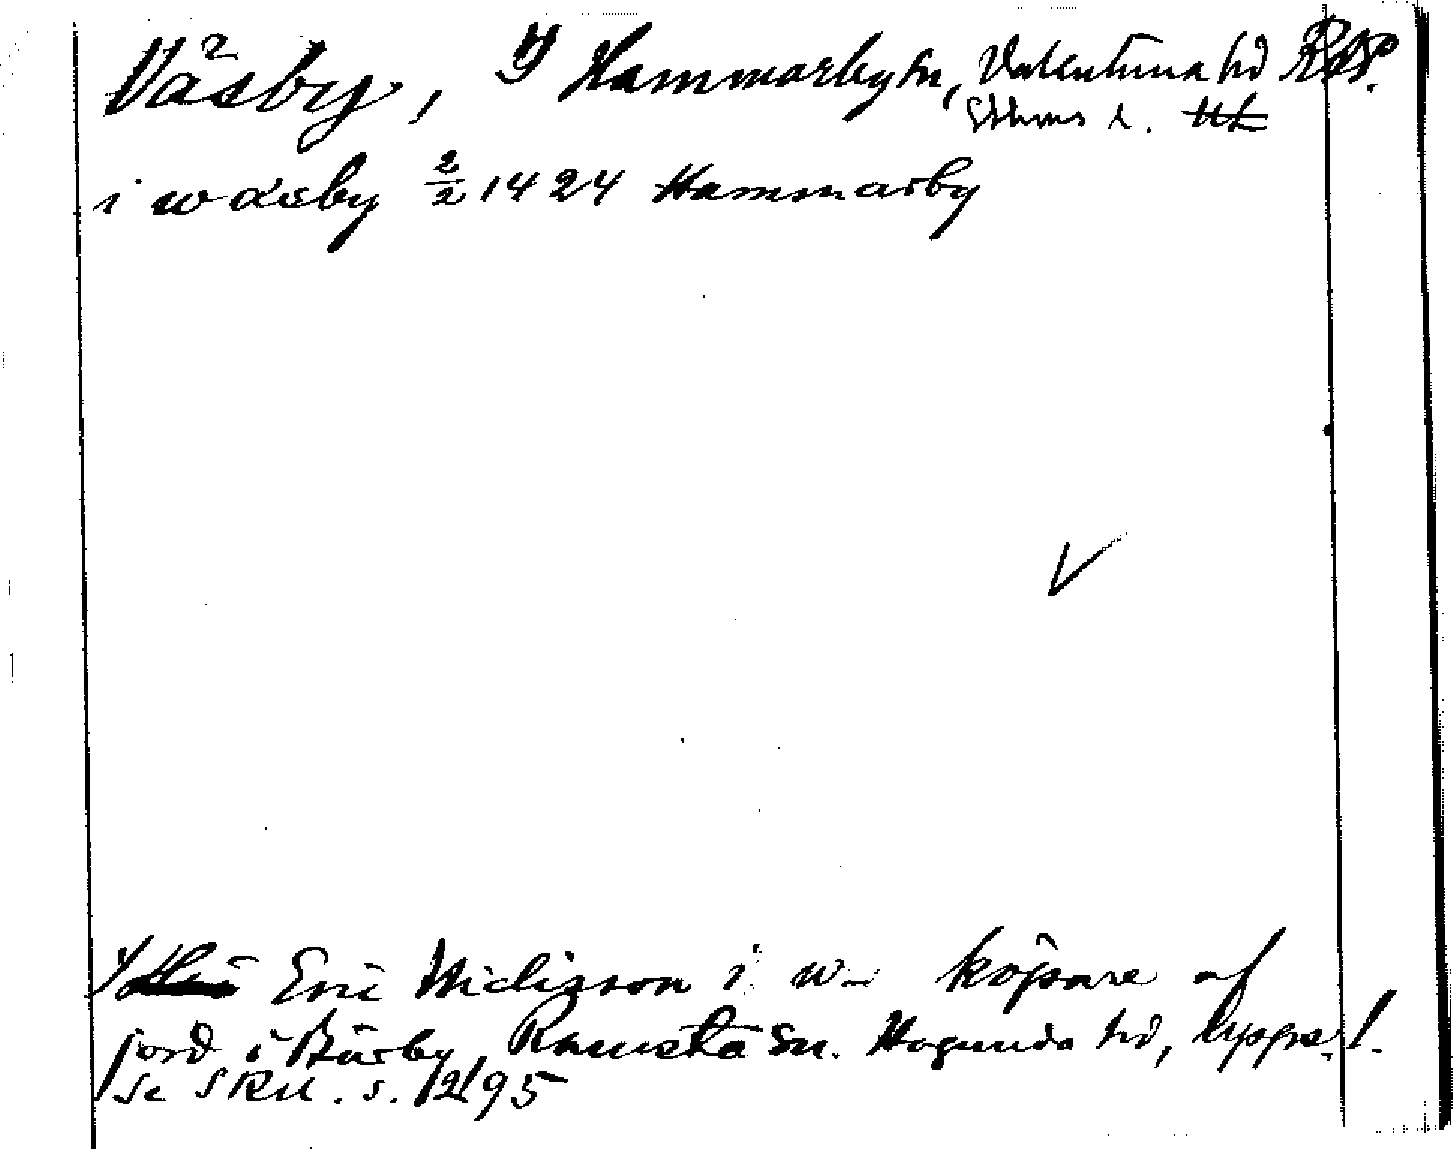 Väsby, I Hammarby sn, Vallentuna hd
Sthms l. UL
i wæsby 2/2 1424 Hammarby
Eric Niclisson i w- köpare af
jord i Bärby, Ramsta sn. Hagunda hd, Uppsa. l.
Se SRU. s. 2195